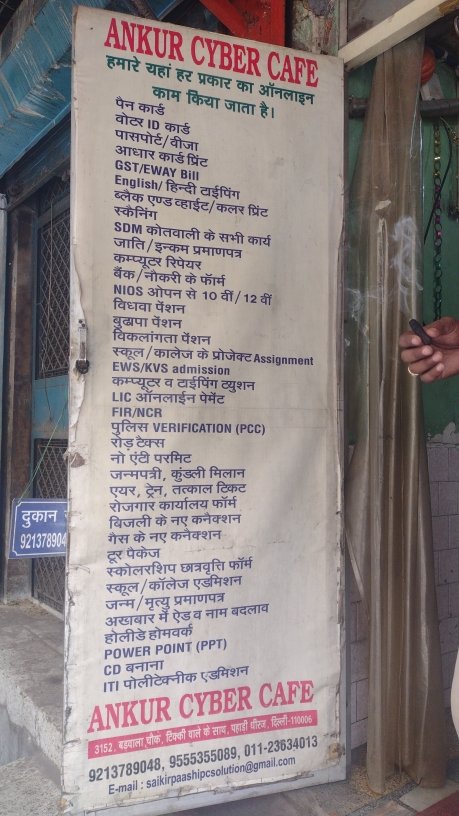 ANKUR CYBER CAFE
हमारे यहां हर प्रकार का ऑनलाइन
काम किया जाता है।
पैन कार्ड
वोटर ID कार्ड
पासपोर्ट/वीजा
आधार कार्ड प्रिंट
GST/EWAY Bill
English/ हिन्दी टाईपिंग
ब्लैक एण्ड व्हाईट/कलर प्रिंट
स्कैनिंग
SDM कोतवाली के सभी कार्य
जाति/इन्कम प्रमाणपत्र
कम्प्यूटर रिपेयर
बैंक/नौकरी के फॉर्म
NIOS ओपन से 10 वीं/12 वीं
विधवा पेंशन
बुढ़ापा पेंशन
विकलांगता पेंशन
स्कूल/कालेज के प्रोजेक्ट Assignment
EWS/KVS admission
कम्प्यूटर व टाईपिंग ट्युशन
LIC ऑनलाईन पेमेंट
FIR/NCR
पुलिस VERIFICATION (PCC)
रोड़ टैक्स
नो एंटी परमिट
जन्मपत्री, कुंडली मिलान
एयर, ट्रेन, तत्काल टिकट
रोजगार कार्यालय फॉर्म
बिजली के नए कनैक्शन
गैस के नए कनैक्शन
टूर पैकेज
स्कोलरशिप छात्रवृत्ति फॉर्म
स्कूल/कॉलेज एडमिशन
जन्म/मृत्यु प्रमाणपत्र
अखबार में ऐड व नाम बदलाव
होलीडे होमवर्क
POWER POINT (PPT)
CD बनाना
ITI पोलीटेक्नीक एडमिशन
ANKUR CYBER CAFE
3152, बड़वाला चौक, टिक्की वाले के साथ, पहाड़ी धीरज, दिल्ली-110006
9213789048, 9555355089, 011-23634013
E-mail : saikirpaashipcsolution@gmail.com
दुकान
921378904